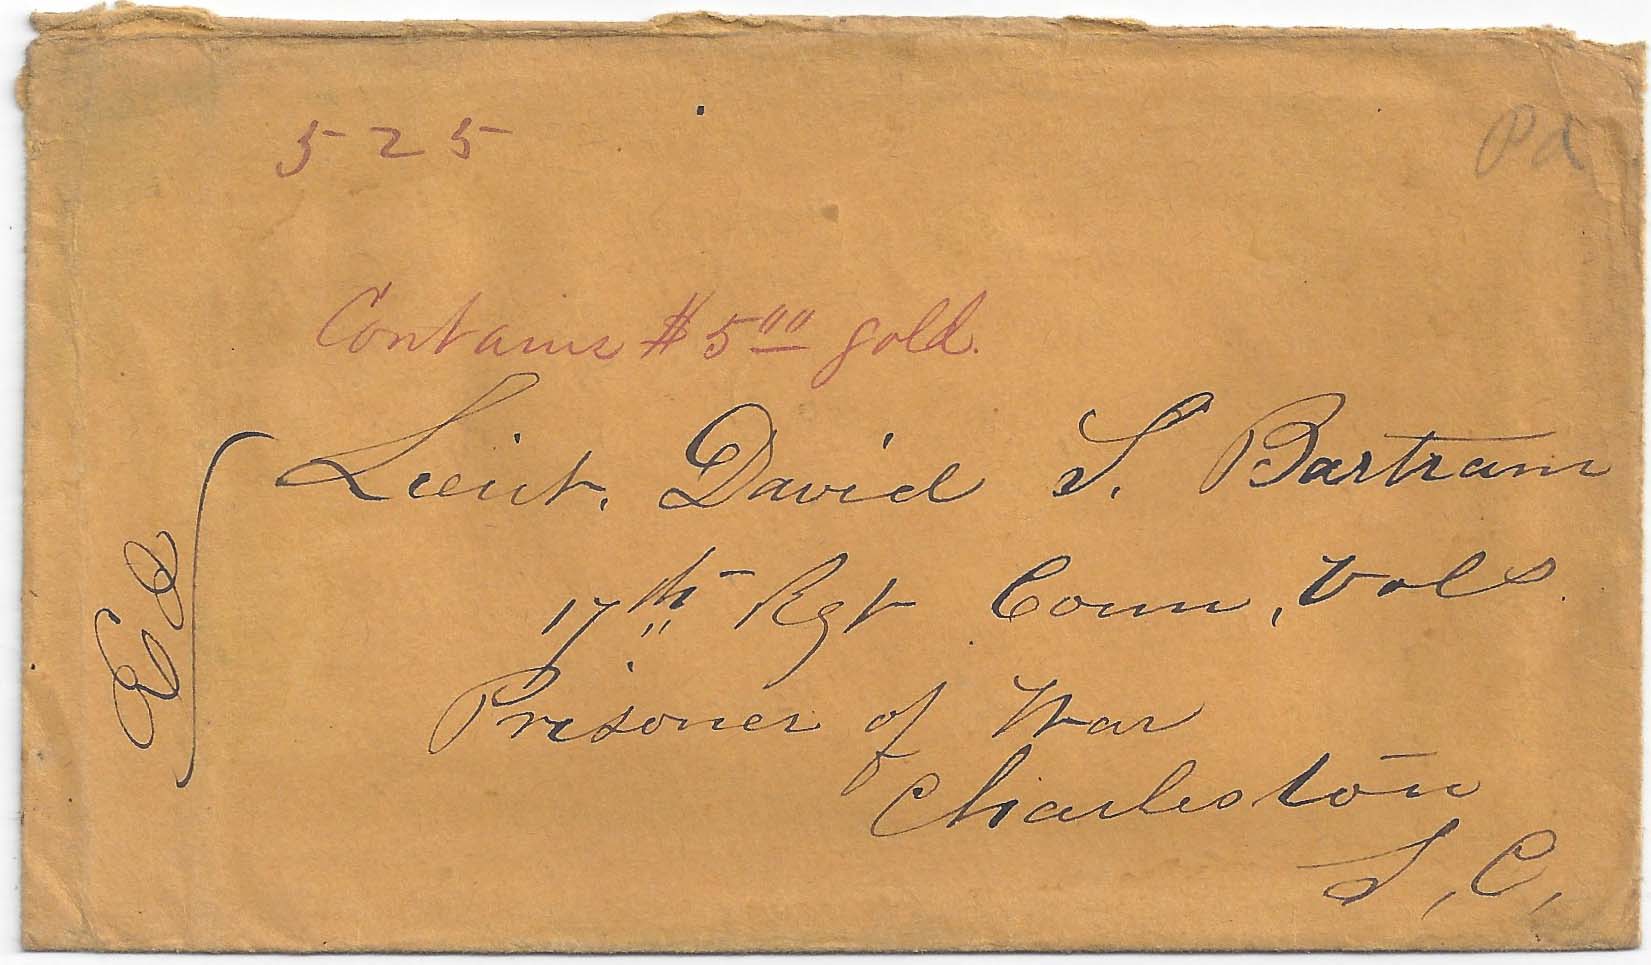 525
Pd
Contains $5.00 gold.
Lieut. David S. Bartram
17th Rgt Conn, Vols.
Prisoner of War
Charleston
S, C,